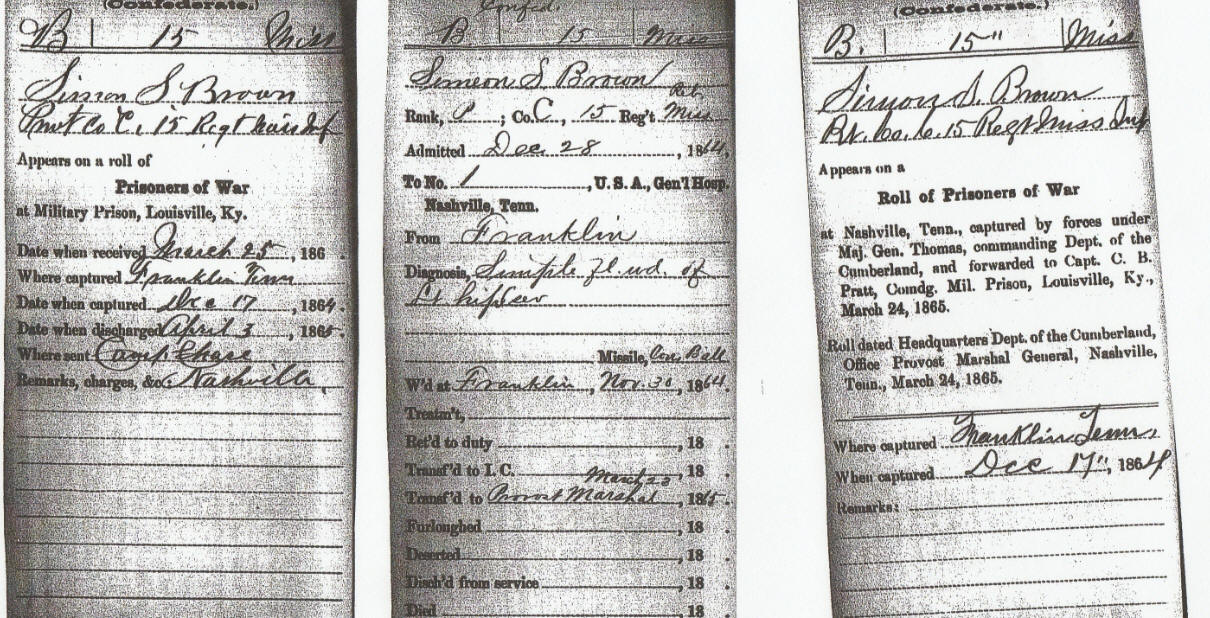 (Confederate.)
B | 15 | Miss
Simon S Brown
Pvt Co C, 15 Regt Miss Inf
Appears on a roll of
Prisoners of War
at Military Prison, Louisville, Ky.
Date when received March 25, 186 .
Where captured Franklin Tenn
Date when captured Dec 17, 1864.
Date when discharged April 3, 1865.
Where sent Camp Chase
Remarks, charges, &c. Nashville,
Confed.
B | 15 | Miss
Simeon S Brown
Reb.
Rank, P; Co. C, 15 Reg't Miss
Admitted Dec. 28, 1864.
To No. 1, U. S. A., Gen'l Hosp.
Nashville, Tenn.
From Franklin
Diagnosis, Simple fl wd. of
Lt hip
Missile, Con. Ball
W'd at Franklin, Nov. 30, 1864.
Treatm't,
Ret'd to duty , 18 .
Transf'd to I. C. , 18 .
March 23
Transf'd to Provost Marshal, 1865.
Furloughed , 18 .
Deserted , 18 .
Disch'd from service , 18 .
Died , 18
(Confederate.)
B. | 15" | Miss
Simon S. Brown
Pv. Co. C. 15 Regt Miss Inf
Appears on a
Roll of Prisoners of War
at Nashville, Tenn., captured by forces under
Maj. Gen. Thomas, commanding Dept. of the
Cumberland, and forwarded to Capt. C. B.
Pratt, Comdg. Mil. Prison, Louisville, Ky.,
March 24, 1865.
Roll dated Headquarters Dept. of the Cumberland,
Office Provost Marshal General, Nashville,
Tenn., March 24, 1865.
Where captured Franklin Tenn,
When captured Dec 17", 1864
Remarks: